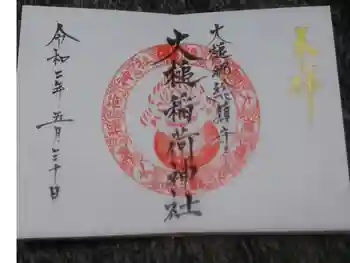 奉拝
大槌町総鎮守
大槌稲荷神社
令和二年五月三十日